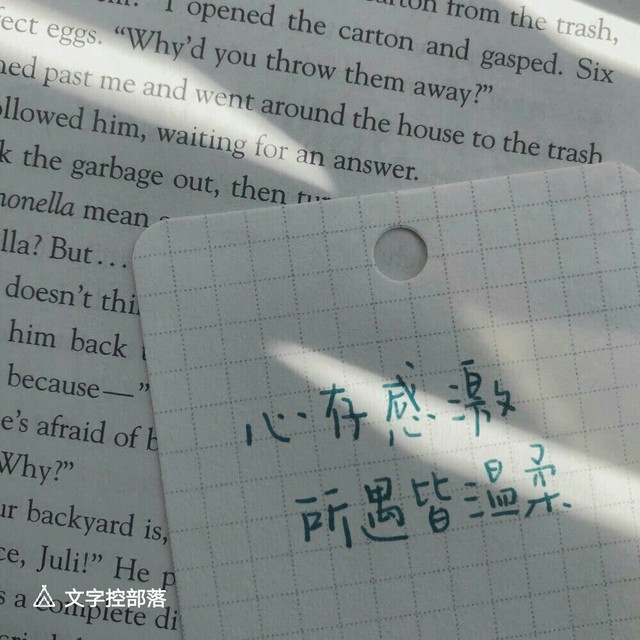 I opened the carton and gasped. Six
fect eggs. “Why’d you throw them away?”
ned past me and went around the house to the trash
ollowed him, waiting for an answer.
k the garbage out, then
monella mean
lla? But . . .
doesn’t thi
him back
because—”
e’s afraid of b
Why?”
ur backyard is,
ce, Juli!” He p
s a complete di
心存感激
所遇皆温柔
文字控部落